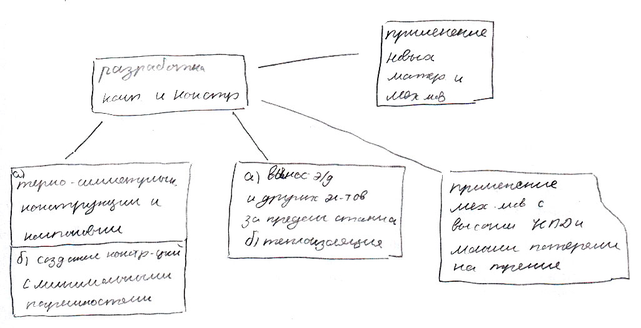 применение
новых
матер и
мех-мов
разработка
комп и констр
а)
термо-симметричн.
конструкции и
компоновки
б) создание констр-ций
с минимальными
погрешностями
а) вынос э/д
и других эл-тов
за пределы станка
б) теплоизоляция
применение
мех-мов с
высоким КПД и
малыми потерями
на трение